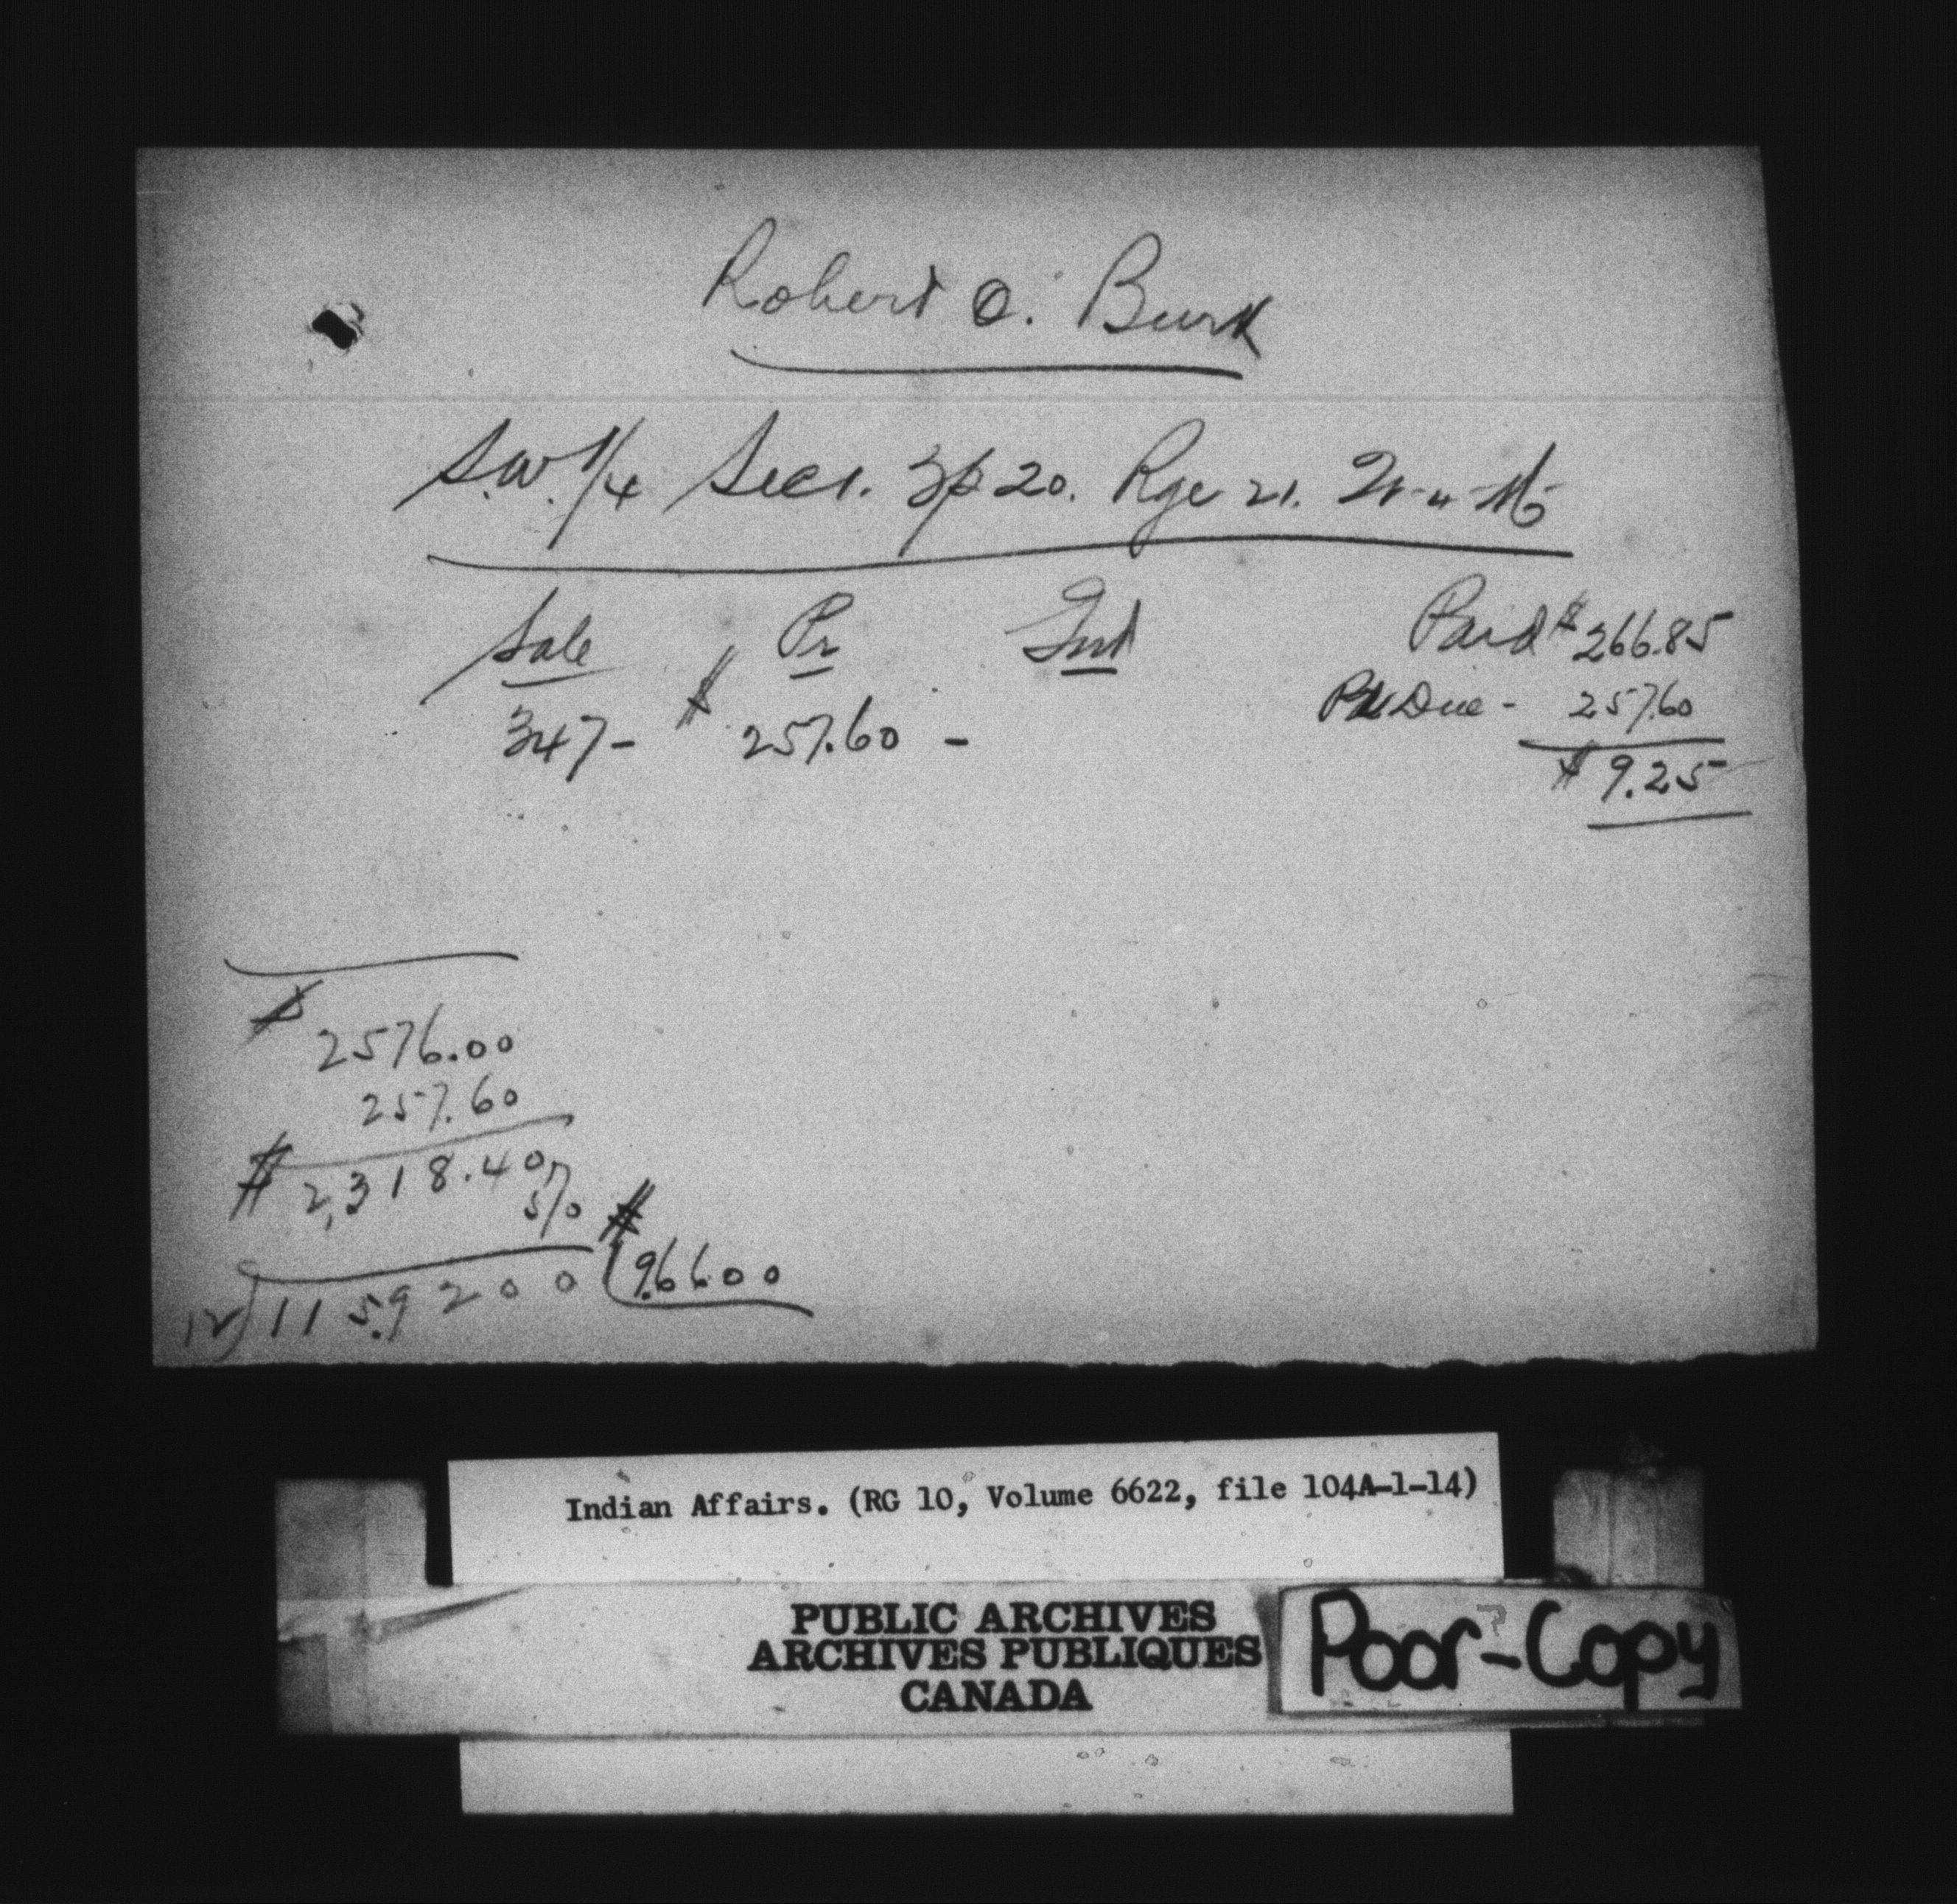 Robert O. Burk
S.W. 1/4 Sec 1. Tp 20. Rge 21. W 2 M
Sale Pr Int
347 - $ 257.60 -
Paid $ 266.85
Due - 257.60
$ 9.25
$ 2576.00
257.60
$ 2,318.40
5%
12) 115.9200 ( $ 9.6600
Indian Affairs. (RG 10, Volume 6622, file 104A-1-14)
PUBLIC ARCHIVES
ARCHIVES PUBLIQUES
CANADA
Poor-Copy